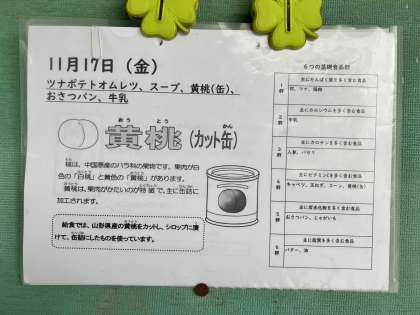 11月17日（金）
ツナポテトオムレツ、スープ、黄桃(缶)、
おさつパン、牛乳
おう とう かん
黄桃(カット缶)
桃は、中国原産のバラ科の果物です。果肉が白
色の「白桃」と黄色の「黄桃」があります。
黄桃は、果肉がかたいのが特徴で、主に缶詰に
加工されます。
給食では、山形県産の黄桃をカットし、シロップに漬
けて、缶詰にしたものを使っています。
６つの基礎食品群
1群
主にたんぱく質を多く含む食品
卵、ツナ、鶏肉
2群
主にカルシウムを多く含む食品
牛乳
3群
主にカロテンを多く含む食品
人参、パセリ
4群
主にビタミンCを多く含む食品
キャベツ、玉ねぎ、コーン、黄桃(缶)
5群
主に炭水化物を多く含む食品
おさつパン、じゃがいも
6群
主に脂質を多く含む食品
バター、油